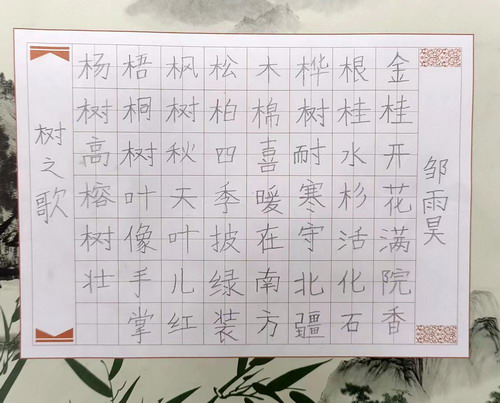 树之歌
杨树高榕树壮
梧桐树叶像手掌
枫树秋天叶儿红
松柏四季披绿装
木棉喜暖在南方
桦树耐寒守北疆
根桂水杉活化石
金桂开花满院香
邹雨昊